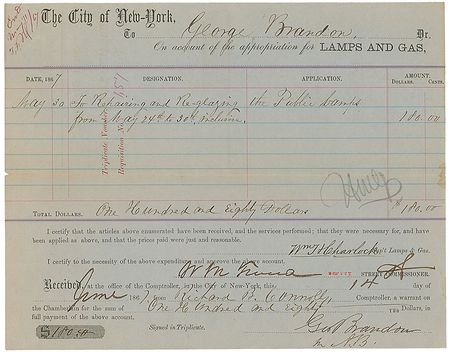 The City of New-York,
To George Brandon, Dr.
On account of the appropriation for LAMPS AND GAS,
DATE, 1867 DESIGNATION. APPLICATION. AMOUNT.
DOLLARS. CENTS.
May 30 To Repairing and Re-glazing the Public Lamps
from May 24th to 30th, inclusive. 180.00
Triplicate Voucher
Requisition No. 757
TOTAL DOLLARS. One Hundred and Eighty Dollars $ 180.00
I certify that the articles above enumerated have been received, and the services performed; that they were necessary for, and have
been applied as above, and that the prices paid were just and reasonable.
Wm H Charlock Sup't Lamps & Gas.
I certify to the necessity of the above expenditure and approve the same.
DEPUTY STREET COMMISSIONER.
Received, at the office of the Comptroller, in the City of New-York, this 14 day of
June 1867 from Richard B. Connolly, Comptroller, a warrant on
the Chamberlain for the sum of One Hundred and Eighty Dollars, in
full payment of the above account.
Geo Brandon
$180.00 Signed in Triplicate.